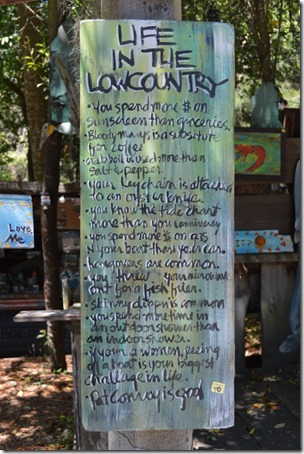 LIFE
IN THE
LOWCOUNTRY
• you spend more $ on
sunscreen than groceries.
• Bloody marys is a substitute
for coffee
• crab boil is used more than
salt & pepper.
• your keychain is attached
to an oyster knife.
• you know the tide chart
more than your anniversary
• you spend more $ on gas
in your boat than your car.
• hangovers are common.
• you threw your microwave
out for a fish fryer.
• skinny dippin is common
• you spend more time in
an outdoor shower than
an indoor shower.
• if your a women, peeing
off a boat is your biggest
challage in life.
• Pat Conroy is god
40
Love,
Me